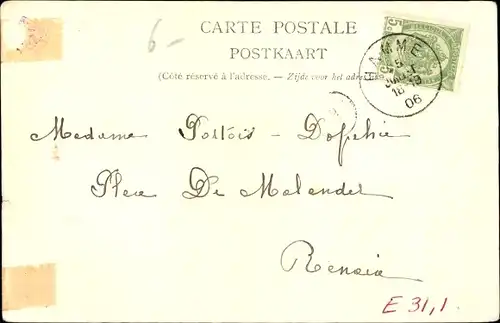 6-
CARTE POSTALE
POSTKAART
(Côté réservé à l'adresse. — Zijde voor het adres
5c
HAMME
18-19
06
Madame Portois - Dopchie
Place De Malander
Renaix
E 31,1